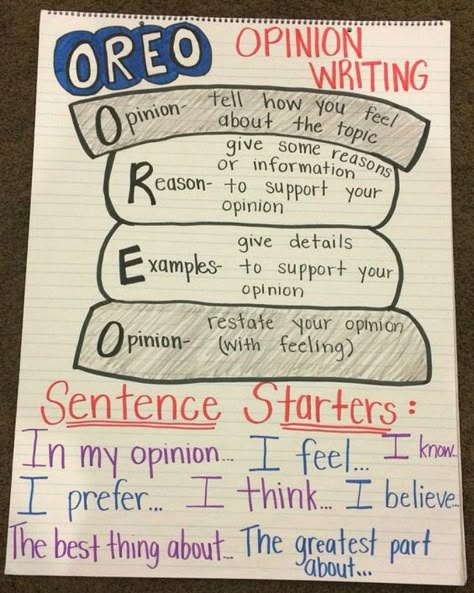 OREO OPINION
WRITING
Opinion- tell how you feel
about the topic
give some reasons
or information
Reason- to support your
opinion
give details
Examples- to support your
opinion
restate your opinion
Opinion- (with feeling)
Sentence Starters:
In my opinion... I feel... I know...
I prefer... I think... I believe...
The best thing about... The greatest part
about...